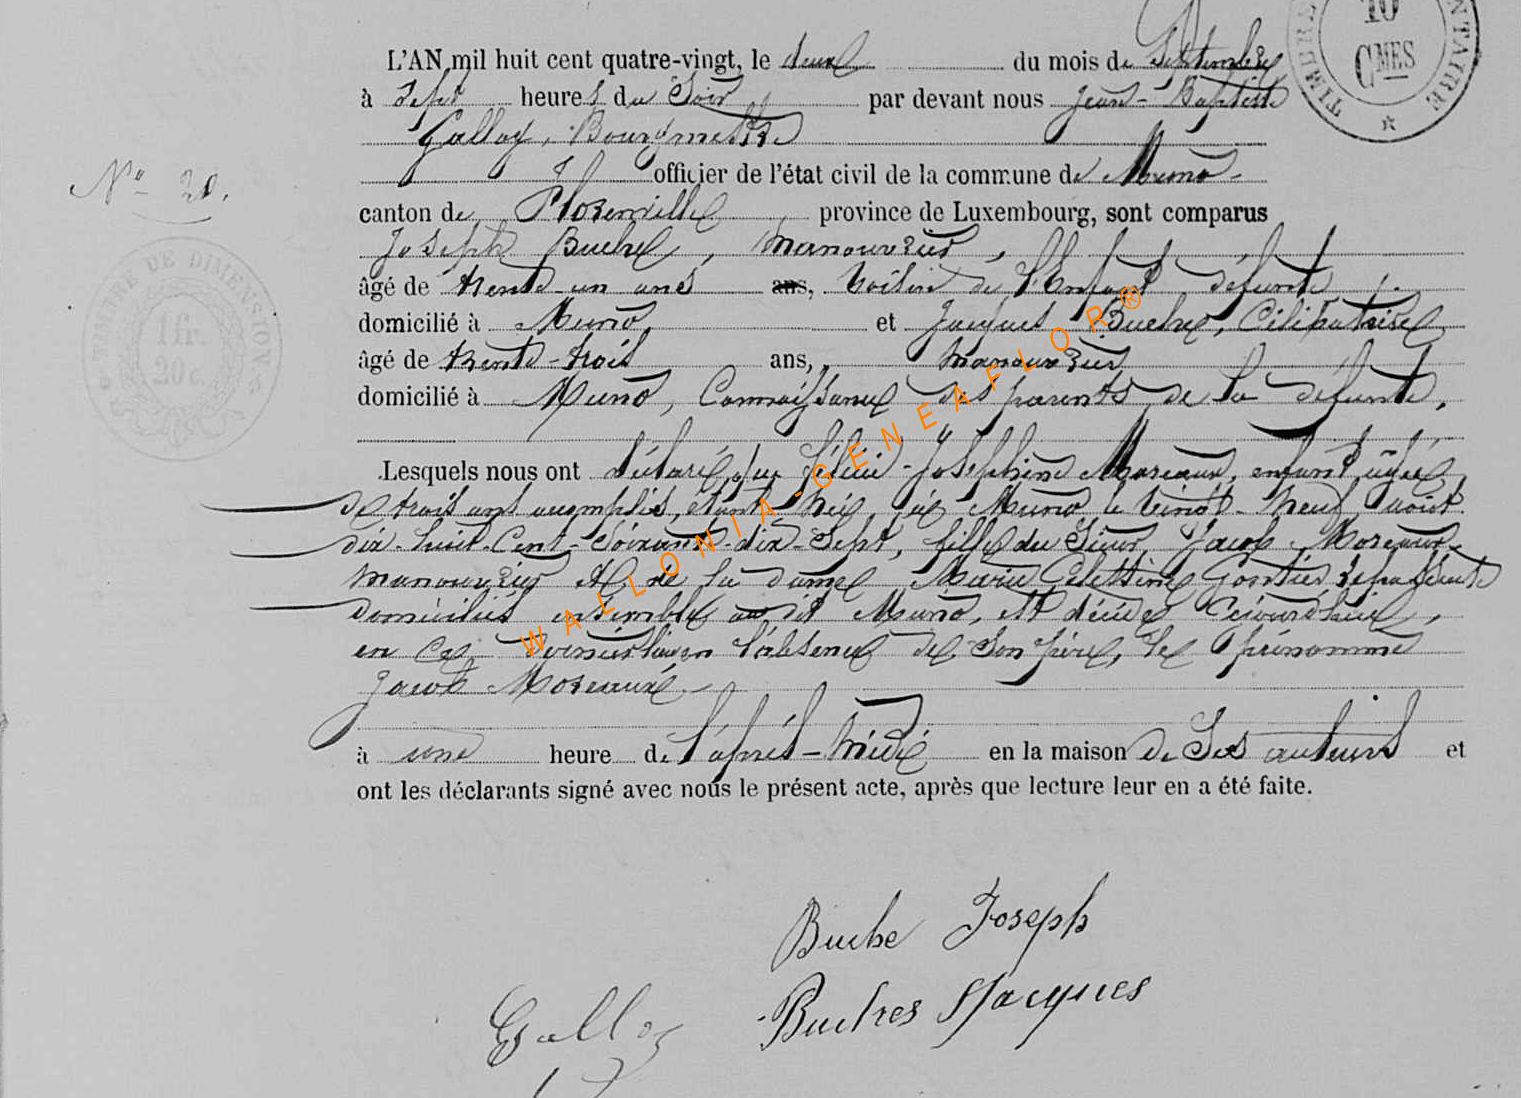 L'AN mil huit cent quatre-vingt, le deux du mois de Septembre
à Sept heures du Soir par devant nous Jean-Baptiste
Galloy, Bourgmestre
officier de l'état civil de la commune de Muno
N° 20.
canton de Florenville province de Luxembourg, sont comparus
Joseph Buche, manouvrier,
âgé de trente-un ans ans, voisin de l'Enfant défunte
domicilié à Muno, et Jacques Buche, Célibataire
âgé de trente-trois ans, manouvrier
domicilié à Muno, Connaissance des parents de la défunte,
Lesquels nous ont déclaré que Félicie-Joséphine Moreaux, enfant âgée
de trois ans accomplis, étant née à Muno le vingt-neuf août
dix-huit-Cent-Soixante-dix-Sept, fille du Sieur Jacob Moreaux
manouvrier et de la dame Marie Celestine Gontier
domiciliés ensemble au dit Muno, est décédée Cejourd'hui,
en Ce dernier lieu en l'absence de Son père, le prénommé
Jacob Moreaux.
à une heure de l'après-midi en la maison de Ses auteurs et
ont les déclarants signé avec nous le présent acte, après que lecture leur en a été faite.
Buche Joseph
Buches Jacques
Galloy
TIMBRE DE DIMENSION
1 fr.
20 c.
TIMBRE
10
CMES
NTAIRE
WALLONIA-GENEAFLOR®